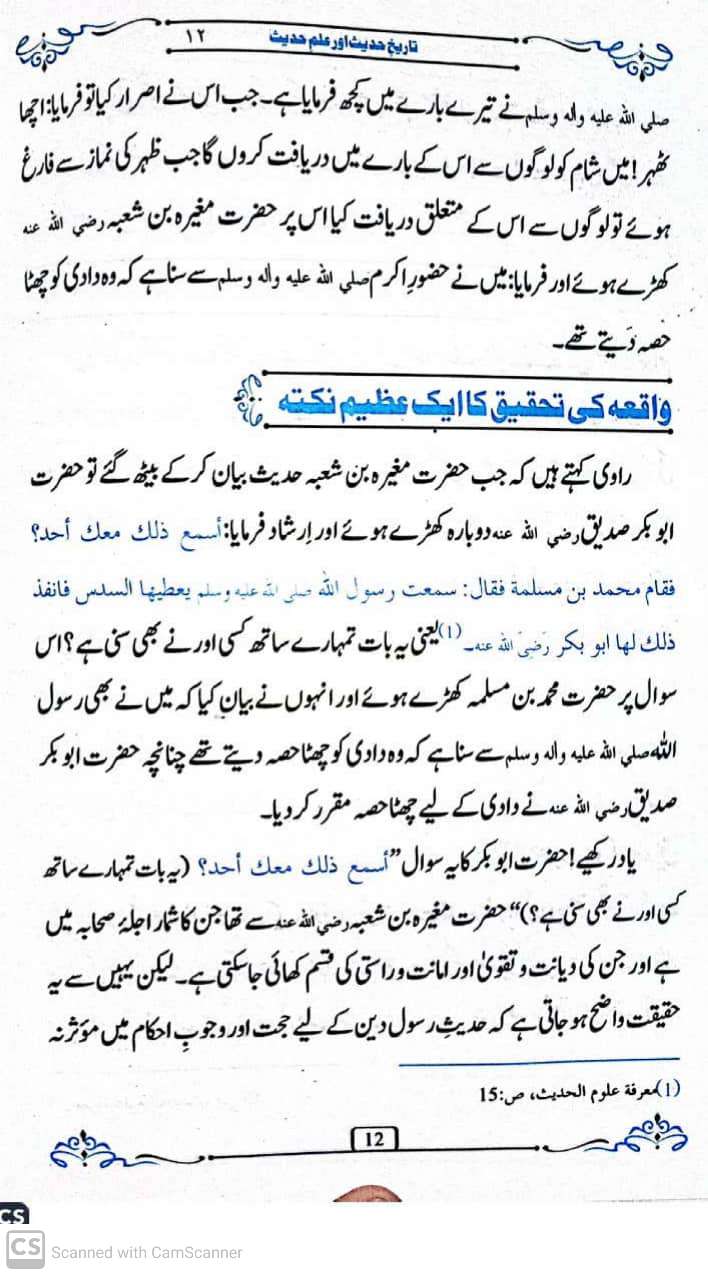 تاریخ حدیث اور علم حدیث ۱۲
صلي الله عليه واله وسلم نے تیرے بارے میں کچھ فرمایا ہے۔ جب اس نے اصرار کیا تو فرمایا: اچھا
ٹھہر! میں شام کو لوگوں سے اس کے بارے میں دریافت کروں گا جب ظہر کی نماز سے فارغ
ہوئے تو لوگوں سے اس کے متعلق دریافت کیا اس پر حضرت مغیرہ بن شعبہ رضي الله عنه
کھڑے ہوئے اور فرمایا: میں نے حضورِ اکرم صلي الله عليه واله وسلم سے سنا ہے کہ وہ دادی کو چھٹا
حصہ دیتے تھے۔
واقعہ کی تحقیق کا ایک عظیم نکتہ
راوی کہتے ہیں کہ جب حضرت مغیرہ بن شعبہ حدیث بیان کر کے بیٹھ گئے تو حضرت
ابو بکر صدیق رضي الله عنه دوبارہ کھڑے ہوئے اور اِرشاد فرمایا: أسمع ذلك معك أحد؟
فقام محمد بن مسلمة فقال: سمعت رسول الله صلي الله عليه وسلم يعطيها السدس فانفذ
ذلك لها ابو بكر رضي الله عنه۔(1) یعنی یہ بات تمہارے ساتھ کسی اور نے بھی سنی ہے؟ اس
سوال پر حضرت محمد بن مسلمہ کھڑے ہوئے اور انہوں نے بیان کیا کہ میں نے بھی رسول
الله صلي الله عليه واله وسلم سے سنا ہے کہ وہ دادی کو چھٹا حصہ دیتے تھے چنانچہ حضرت ابو بکر
صدیق رضي الله عنه نے دادی کے لیے چھٹا حصہ مقرر کر دیا۔
یاد رکھیے! حضرت ابو بکر کا یہ سوال ”أسمع ذلك معك أحد؟ (یہ بات تمہارے ساتھ
کسی اور نے بھی سنی ہے؟)“ حضرت مغیرہ بن شعبہ رضي الله عنه سے تھا جن کا شمار اجلۂ صحابہ میں
ہے اور جن کی دیانت و تقویٰ اور امانت و راستی کی قسم کھائی جا سکتی ہے۔ لیکن یہیں سے یہ
حقیقت واضح ہو جاتی ہے کہ حدیثِ رسول دین کے لیے حجت اور وجوبِ احکام میں مؤثر نہ
(1) معرفة علوم الحديث، ص:15
12
CS
CS Scanned with CamScanner